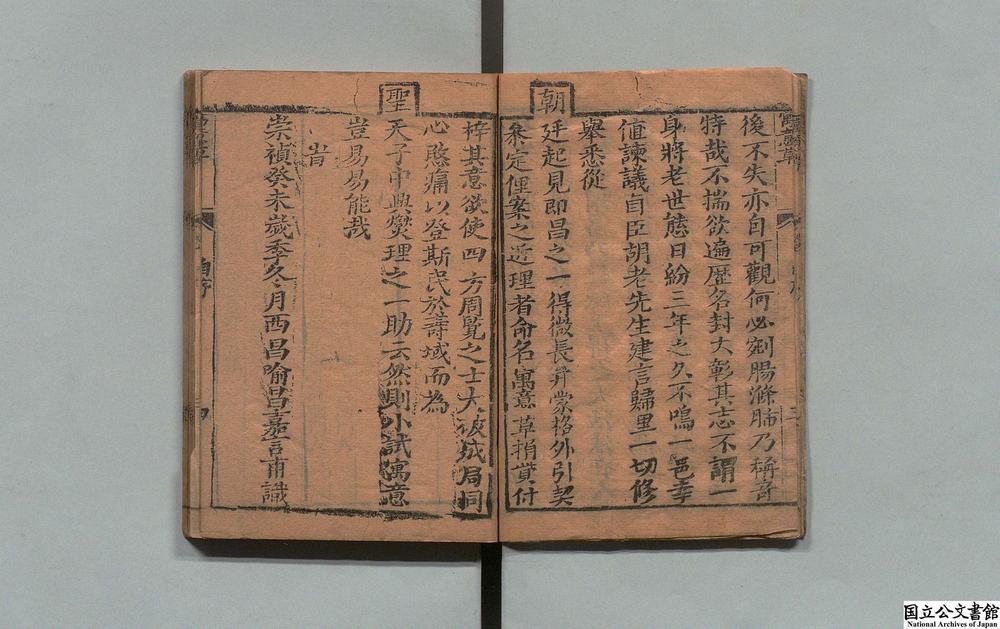 後不失亦自可觀何必刳腸滌肺乃稱奇
特哉不揣欲遍歷名封大彰其志不謂一
身將老世態日紛三年之久不鳴一邑幸
值諫議自臣胡老先生建言歸里一切修
舉悉從
朝
廷起見即昌之一得微長并蒙格外引契
參定俚案之近理者命名寓意草捐貲付
梓其意欲使四方周覽之士大破成局同
心憗痛以登斯民於壽域而為
聖
天子中興燮理之一助云然則小試寓意
豈易易能哉
旹
崇禎癸未歲季冬月西昌喻昌嘉言甫識
自序
四
国立公文書館
National Archives of Japan